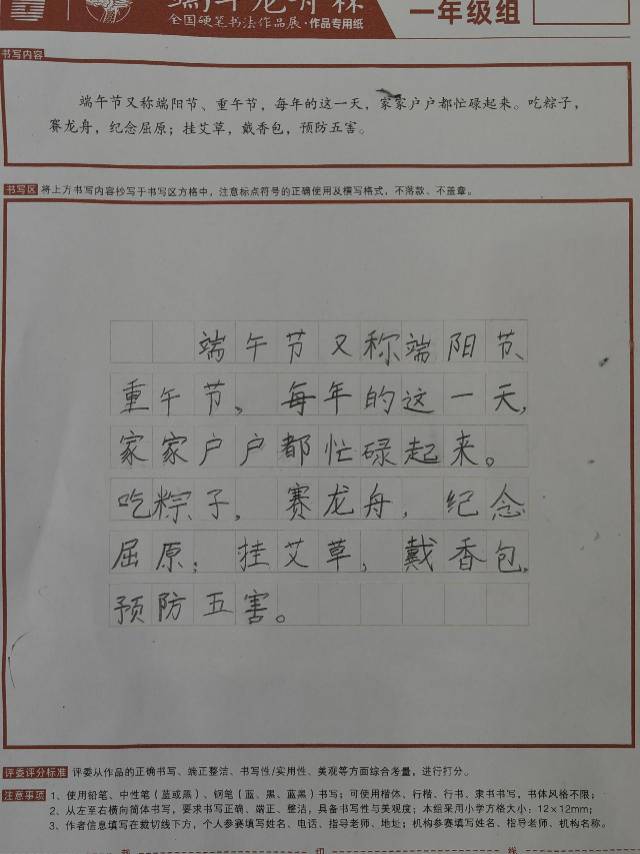 全国硬笔书法作品展·作品专用纸
一年级组
书写内容
端午节又称端阳节、重午节，每年的这一天，家家户户都忙碌起来。吃粽子，
赛龙舟，纪念屈原；挂艾草，戴香包，预防五害。
书写区 将上方书写内容抄写于书写区方格中，注意标点符号的正确使用及横写格式，不落款、不盖章。
端午节又称端阳节、
重午节，每年的这一天，
家家户户都忙碌起来。
吃粽子，赛龙舟，纪念
屈原；挂艾草，戴香包，
预防五害。
评委评分标准 评委从作品的正确书写、端正整洁、书写性/实用性、美观等方面综合考量，进行打分。
注意事项 1、使用铅笔、中性笔（蓝或黑）、钢笔（蓝、黑、蓝黑）书写；可使用楷体、行楷、行书、隶书书写，书体风格不限；
2、从左至右横向简体书写，要求书写正确、端正、整洁，具备书写性与美观度；本组采用小学方格大小：12×12mm；
3、作者信息填写在裁切线下方，个人参赛填写姓名、电话、指导老师、地址；机构参赛填写姓名、指导老师、机构名称。